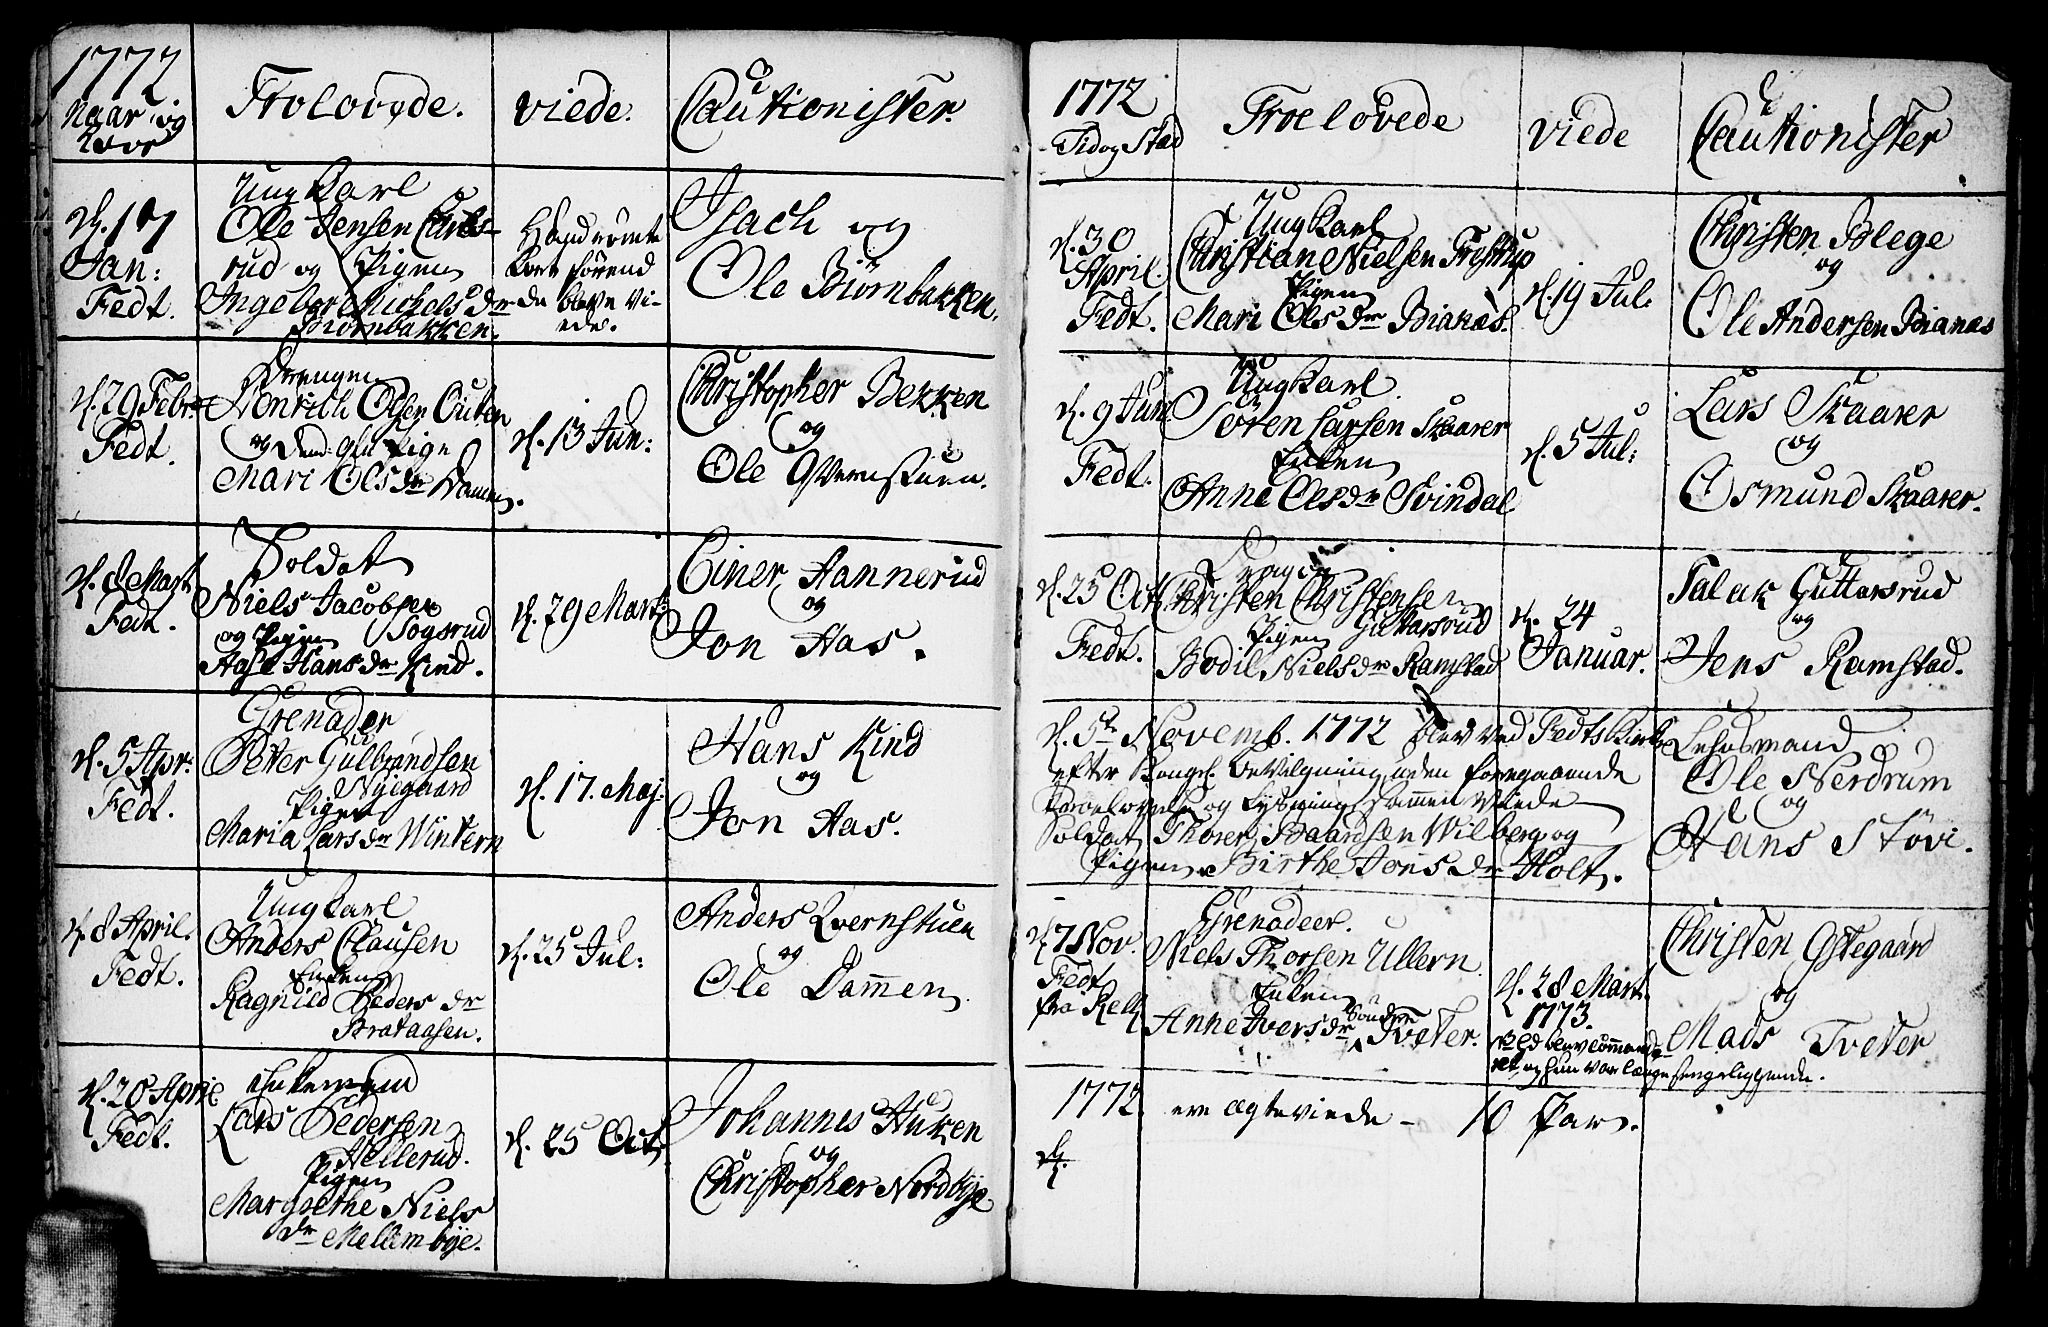 1772
Naar og
Trolovede.
viede.
Cautionister.
d. 17
Jan:
Fedt.
Ung Karl
Ole Jensen
rud og Pigen
Ingebor Michels dr
Biørnbakken.
Hand rømte
kort førend
de bleve vi-
ede.
Isach og
Ole Biørnbakken.
d. 29 Febr.
Fedt.
Drengen
Henrich Olsen
og Pige
Mari Ols dr
d. 13 Jun:
Christopher Bekken
og
Ole Qvernstuen.
d. 8 Mart
Fedt.
Soldat
Niels Jacobsen
og Pigen Sogsrud
Aase Hans dr Kind.
d. 29 Mart:
Einer Hannerud
og
Jon Aas.
d. 5 Apr:
Fedt.
Grenader
Peter Gulbrandsen
Nyegaard
Pigen
Maria Lars dr Wintern
d. 17. Maj:
Hans Kind
og
Jon Aas.
d. 8 April.
Fedt.
Ung Karl
Anders Clausen
Enken
Ragnild Peders dr
Brataasen.
d. 25 Jul:
Anders Qvernstuen
og
Ole Dammen
d. 20 April
Fedt.
Enkemand
Lars Pedersen
Hellerud.
Pigen
Margrethe Niels
dr Mellembye.
d. 25 Oct.
Johannes Auken
og
Christopher Nordbye
1772
Tid og Stæd
Troelovede
viede
Cautionister
d. 30
April.
Fedt.
Ung Karl
Christian Nielsen Frestrup
Pigen
Mari Ols dr Bianæs.
d. 19 Jul:
Christen Blege
og
Ole Andersen Bianæs
d. 9 Jun.
Fedt.
Ung Karl
Søren Larsen Skaarer
Enken
Anne Ols dr Svindal
d. 5 Jul:
Lars Skaarer
og
Osmund Skaarer.
d. 25 Oct.
Fedt.
Dragon
Christen Christensen
Pigen Guttersrud
Bodil Niels dr Ramstad
d. 24
Januar.
Talak Guttersrud
og
Jens Ramstad.
d. 5te Novemb. 1772 blev ved Fedts Kirke
efter Kongel. bevilgning uden foregaaende
Troelovelse og Lysning sammen viede
Soldat Thorer Baardsen Wilberg og
Pigen Birthe Jons dr Holt.
Lehnsmand
Ole Nerdrum
og
Hans Støvi.
d. 7 Nov.
Fedt
Grenadeer.
Niels Thorsen Ullern
Enken
Anne Ivers dr Søndre Tveter.
d. 28 Mart.
1773.
ved hans Commande-
ret og hun var længe sengeliggende.
Christen Østegaard
og
Mads Tveter
1772. ere ægteviede - 10 Par.
d.